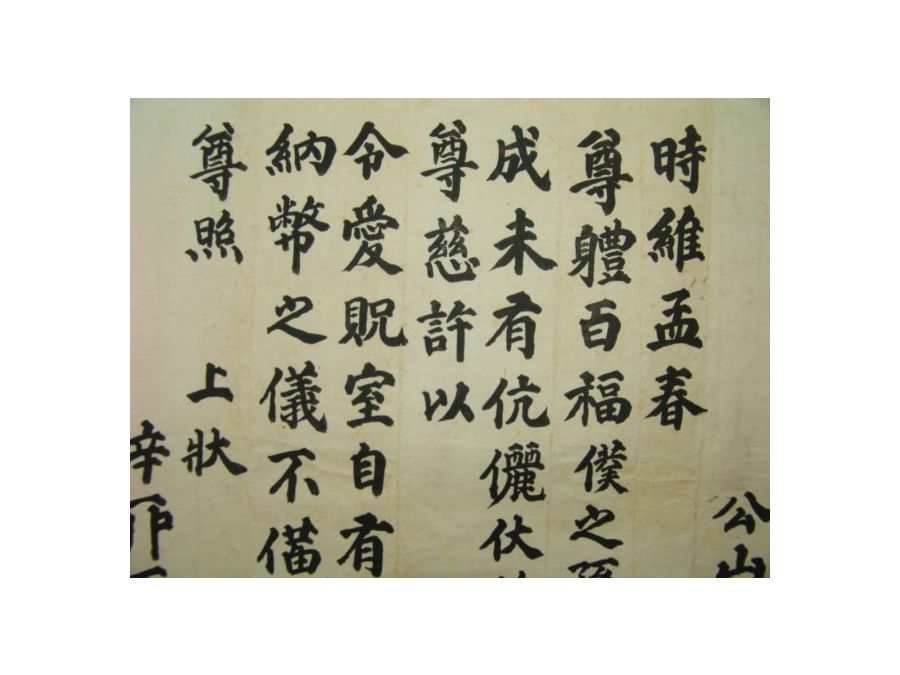 公山
時維孟春
尊體百福僕之孫
成未有伉儷伏
尊慈許以
令愛貺室自有
納幣之儀不備
尊照 上狀
辛卯